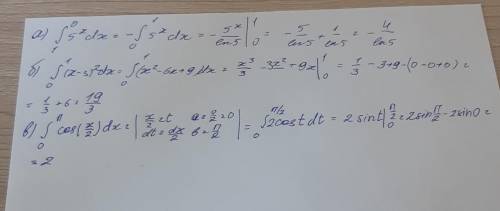 а) ∫₁⁰ 5ˣdx = -∫₀¹ 5ˣdx = -5ˣ/ln5 |₀¹ = -5/ln5 + 1/ln5 = -4/ln5
б) ∫₀¹ (x-3)²dx = ∫₀¹ (x²-6x+9)dx = x³/3 - 3x² + 9x |₀¹ = 1/3 - 3 + 9 - (0-0+0) =
= 1/3 + 6 = 19/3
в) ∫₀^π cos(x/2)dx = | x/2 = t a = 0/2 = 0 dt = dx/2 b = π/2 | = ∫₀^(π/2) 2cost dt = 2sint |₀^(π/2) = 2sin π/2 - 2sin0 =
= 2